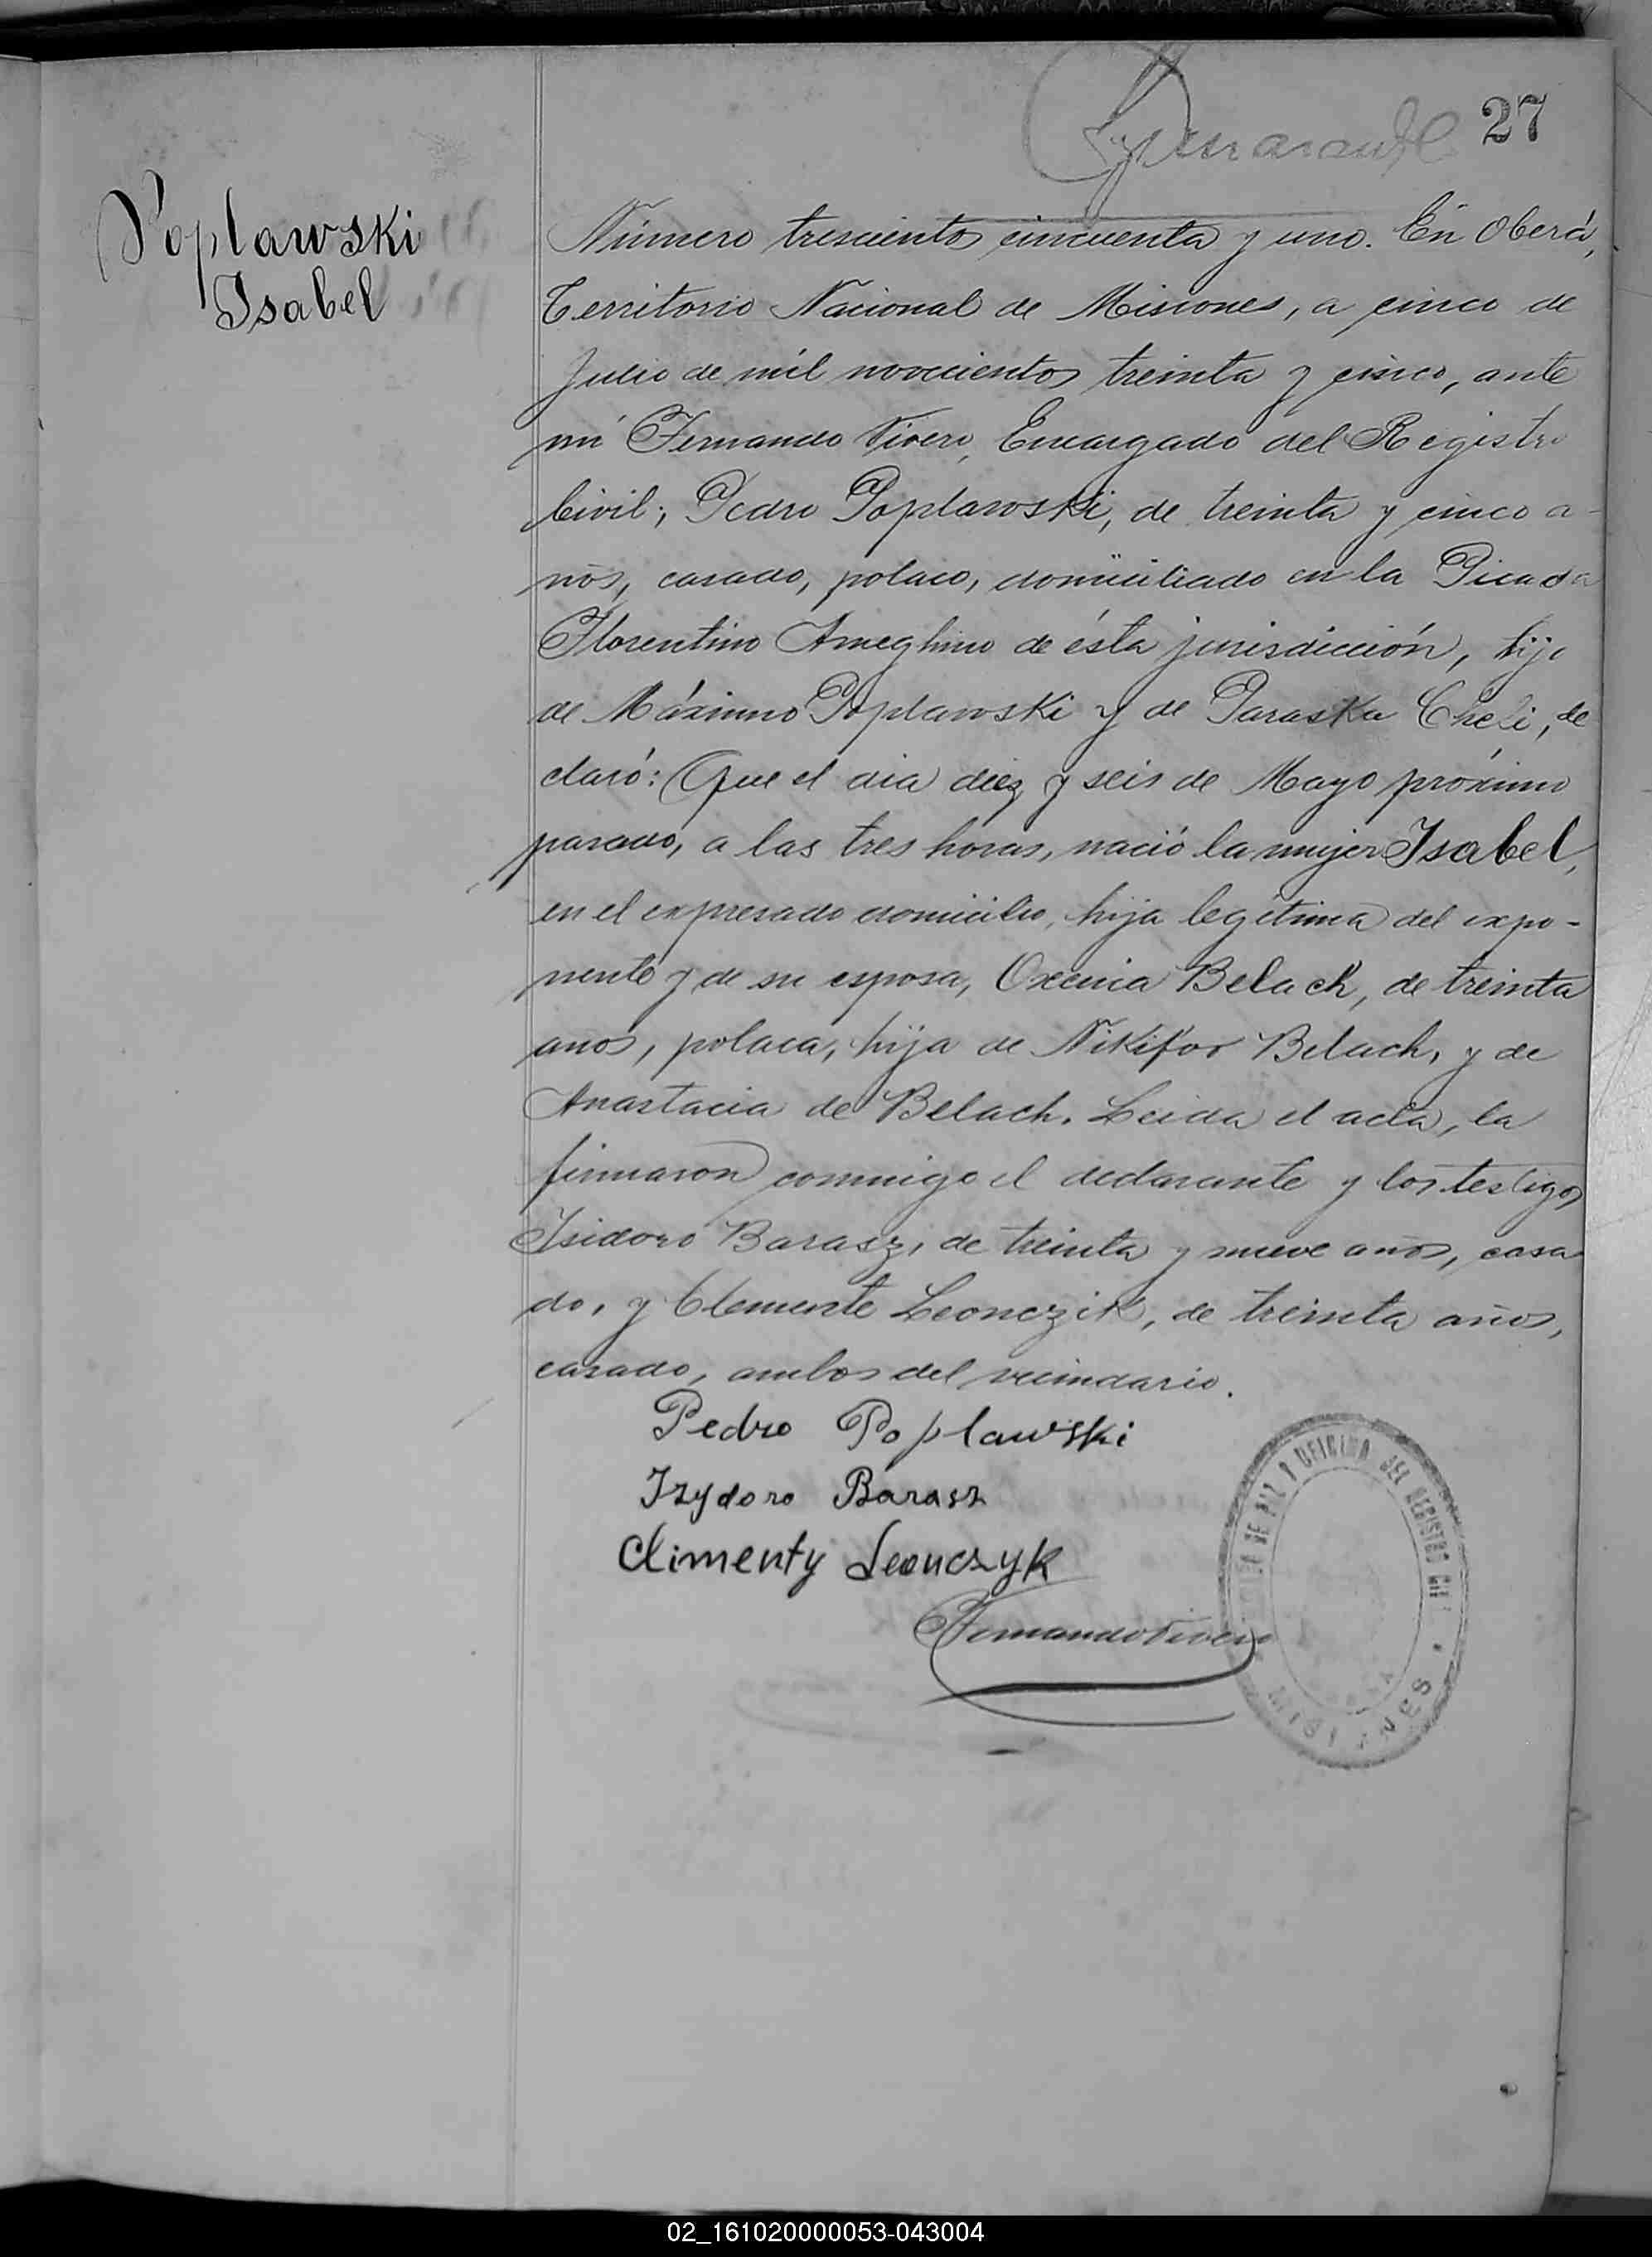 27
Poplawski
Isabel
Número tresciento cincuenta y uno. En Oberá,
Territorio Nacional de Misiones, a cinco de
Julio de mil novecientos treinta y cinco, ante
mí Fernando Vivero, Encargado del Registro
Civil; Pedro Poplawski, de treinta y cinco a-
ños, casado, polaco, domiciliado en la Picada
Florentino Ameghino de ésta jurisdicción, hijo
de Máximo Poplawski y de Paraska Cheli, de
claró: Que el dia diez y seis de Mayo próximo
pasado, a las tres horas, nació la mujer Isabel,
en el expresado domicilio, hija legítima del expo-
nente y de su esposa, Oxenia Belach, de treinta
años, polaca, hija de Nikifor Belach, y de
Anastacia de Belach. Leida el acta, la
firmaron conmigo el declarante y los testigos
Isidoro Barasz, de treinta y nueve años, casa
do, y Clemente Leonczik, de treinta años,
casado, ambos del vecindario.
Pedro Poplawski
Izydoro Barasz
Climenty Leonczyk
Fernando Vivero
DE PAZ Y OFICINA DEL REGISTRO
MISIONES
02_161020000053-043004